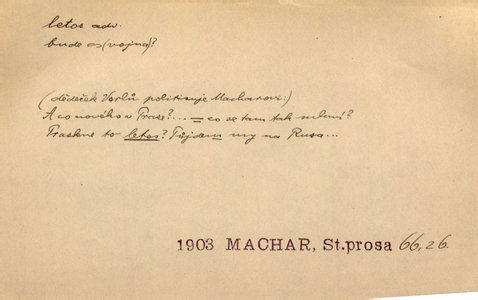 letos adv.
bude os (vojna)?
(dědeček Vorlů politisuje Macharovi:)
A co nového v Praze?... = co se tam tak mluví?
Praskne to letos? Půjdem my na Rusa...
1903 MACHAR, St.prosa 66,26.